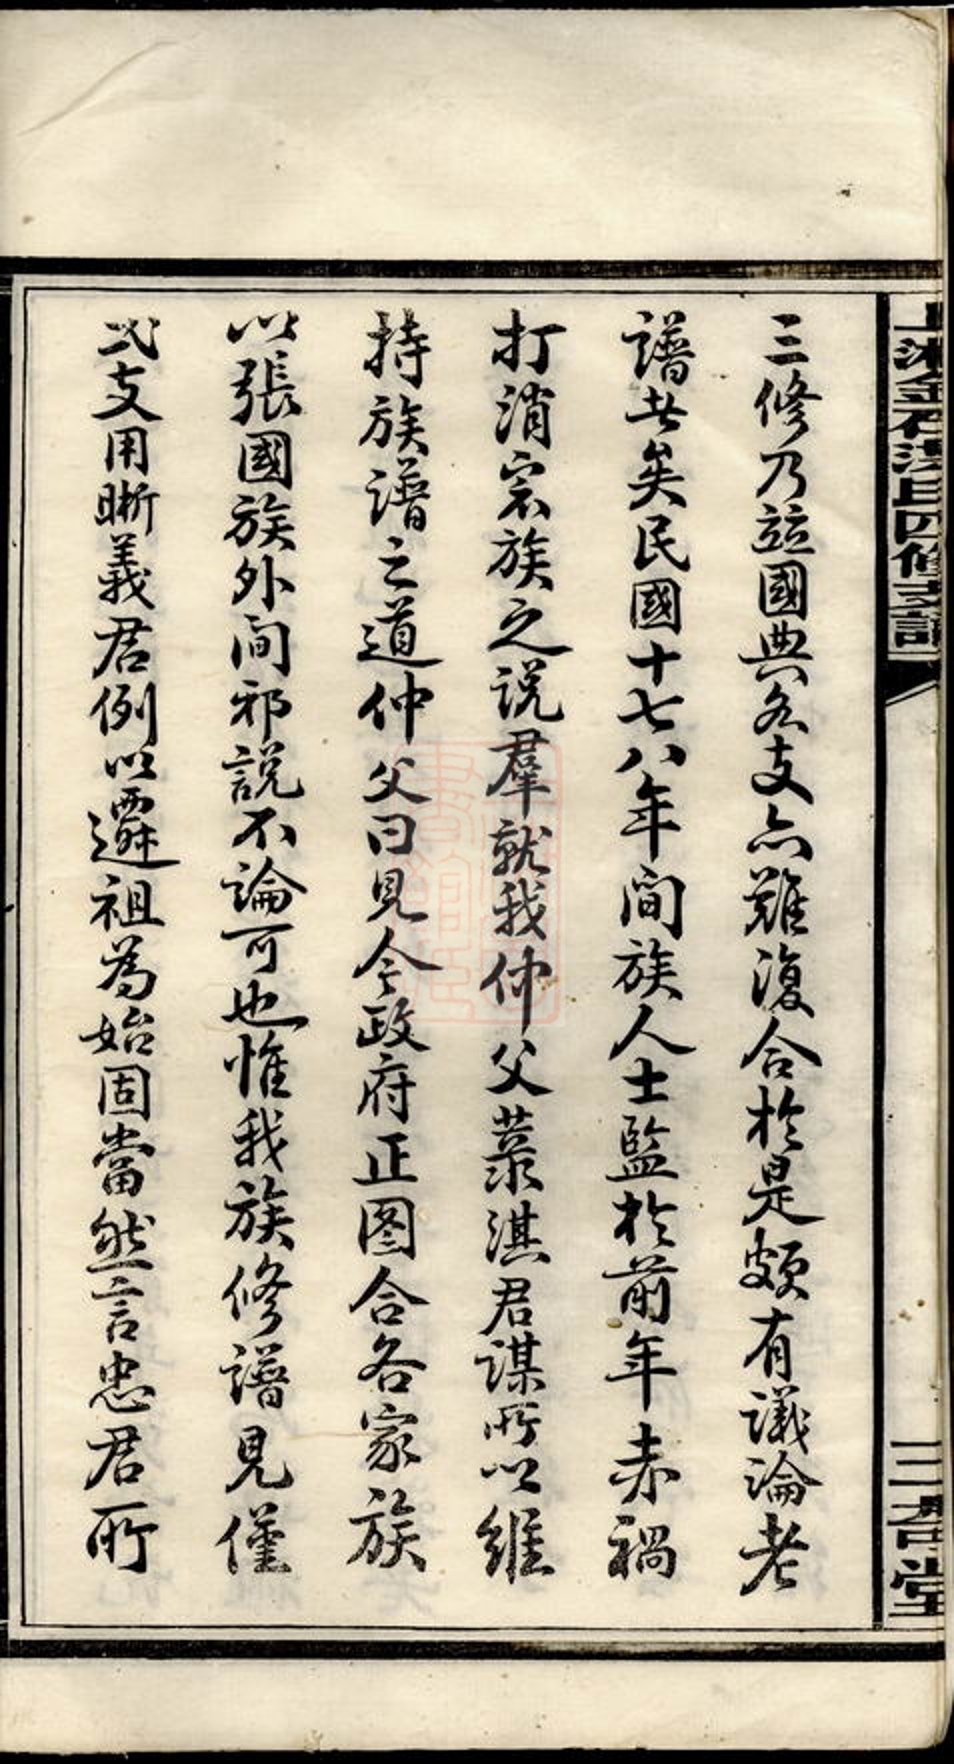 上湘金石洪氏四修支譜
三修乃竝國典各支亦難復合於是頗有議論老
譜者矣民國十七八年間族人士監於前年赤禍
打消宗族之説羣就我仲父菉淇君謀所以維
持族譜之道仲父曰見今政府正图合各家族
以張國族外间邪説不論可也惟我族修譜見僅
弍支用晰義君例以遷祖為始固當然言忠君所